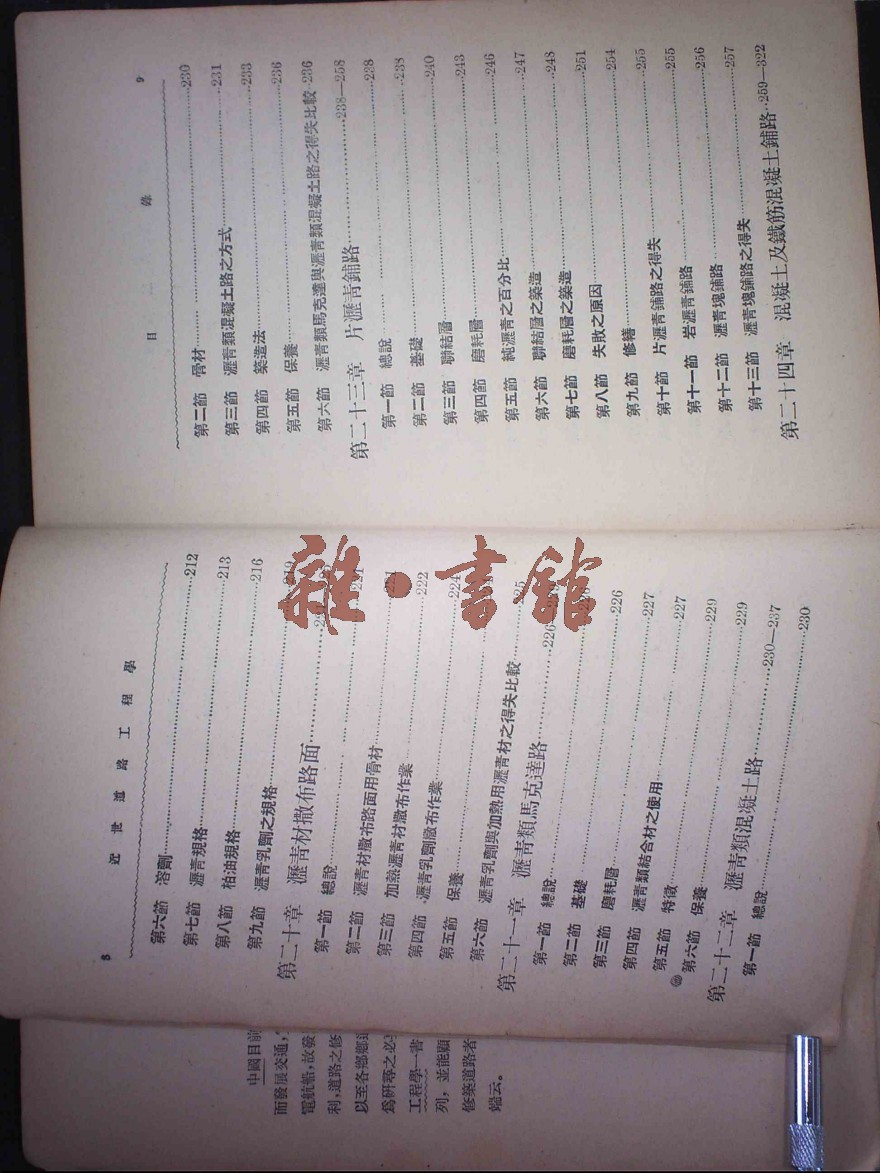 8
近世道路工程學
第六節 溶劑……212
第七節 瀝青規格……213
第八節 枯油規格……216
第九節 瀝青乳劑之規格……219
第二十章 瀝青材撒布路面……
第一節 總說……
第二節 瀝青材撒布路面用骨材
第三節 加熱瀝青材撒布作業……222
第四節 瀝青乳劑撒布作業……224
第五節 保養……
第六節 瀝青乳劑與加熱用瀝青材之得失比較……225
第二十一章 瀝青類馬克達路……226
第一節 總說……
第二節 基礎……
第三節 磨耗層……226
第四節 瀝青類結合材之使用……227
第五節 特徵……227
第六節 保養……229
第二十二章 瀝青類混凝土路……230—237
第一節 總說……230
目錄
9
第二節 骨材……230
第三節 瀝青類混凝土路之方式……231
第四節 築造法……233
第五節 保養……236
第六節 瀝青類馬克達與瀝青類混凝土路之得失比較·236
第二十三章 片瀝青鋪路……238—258
第一節 總說……238
第二節 基礎……238
第三節 聯結層……240
第四節 磨耗層……243
第五節 純瀝青之百分比……246
第六節 聯結層之築造……247
第七節 磨耗層之築造……248
第八節 失敗之原因……251
第九節 修繕……254
第十節 片瀝青鋪路之得失……255
第十一節 岩瀝青鋪路……255
第十二節 瀝青塊鋪路……256
第十三節 瀝青塊鋪路之得失……257
第二十四章 混凝土及鐵筋混凝土鋪路··259—322
中國目前
而發展交通，
電航船，故發
利，道路之修
以至各鄉鄉道
為研尋之必
工程學一書
列，並能顯
修築道路者
端云。
雜·書館